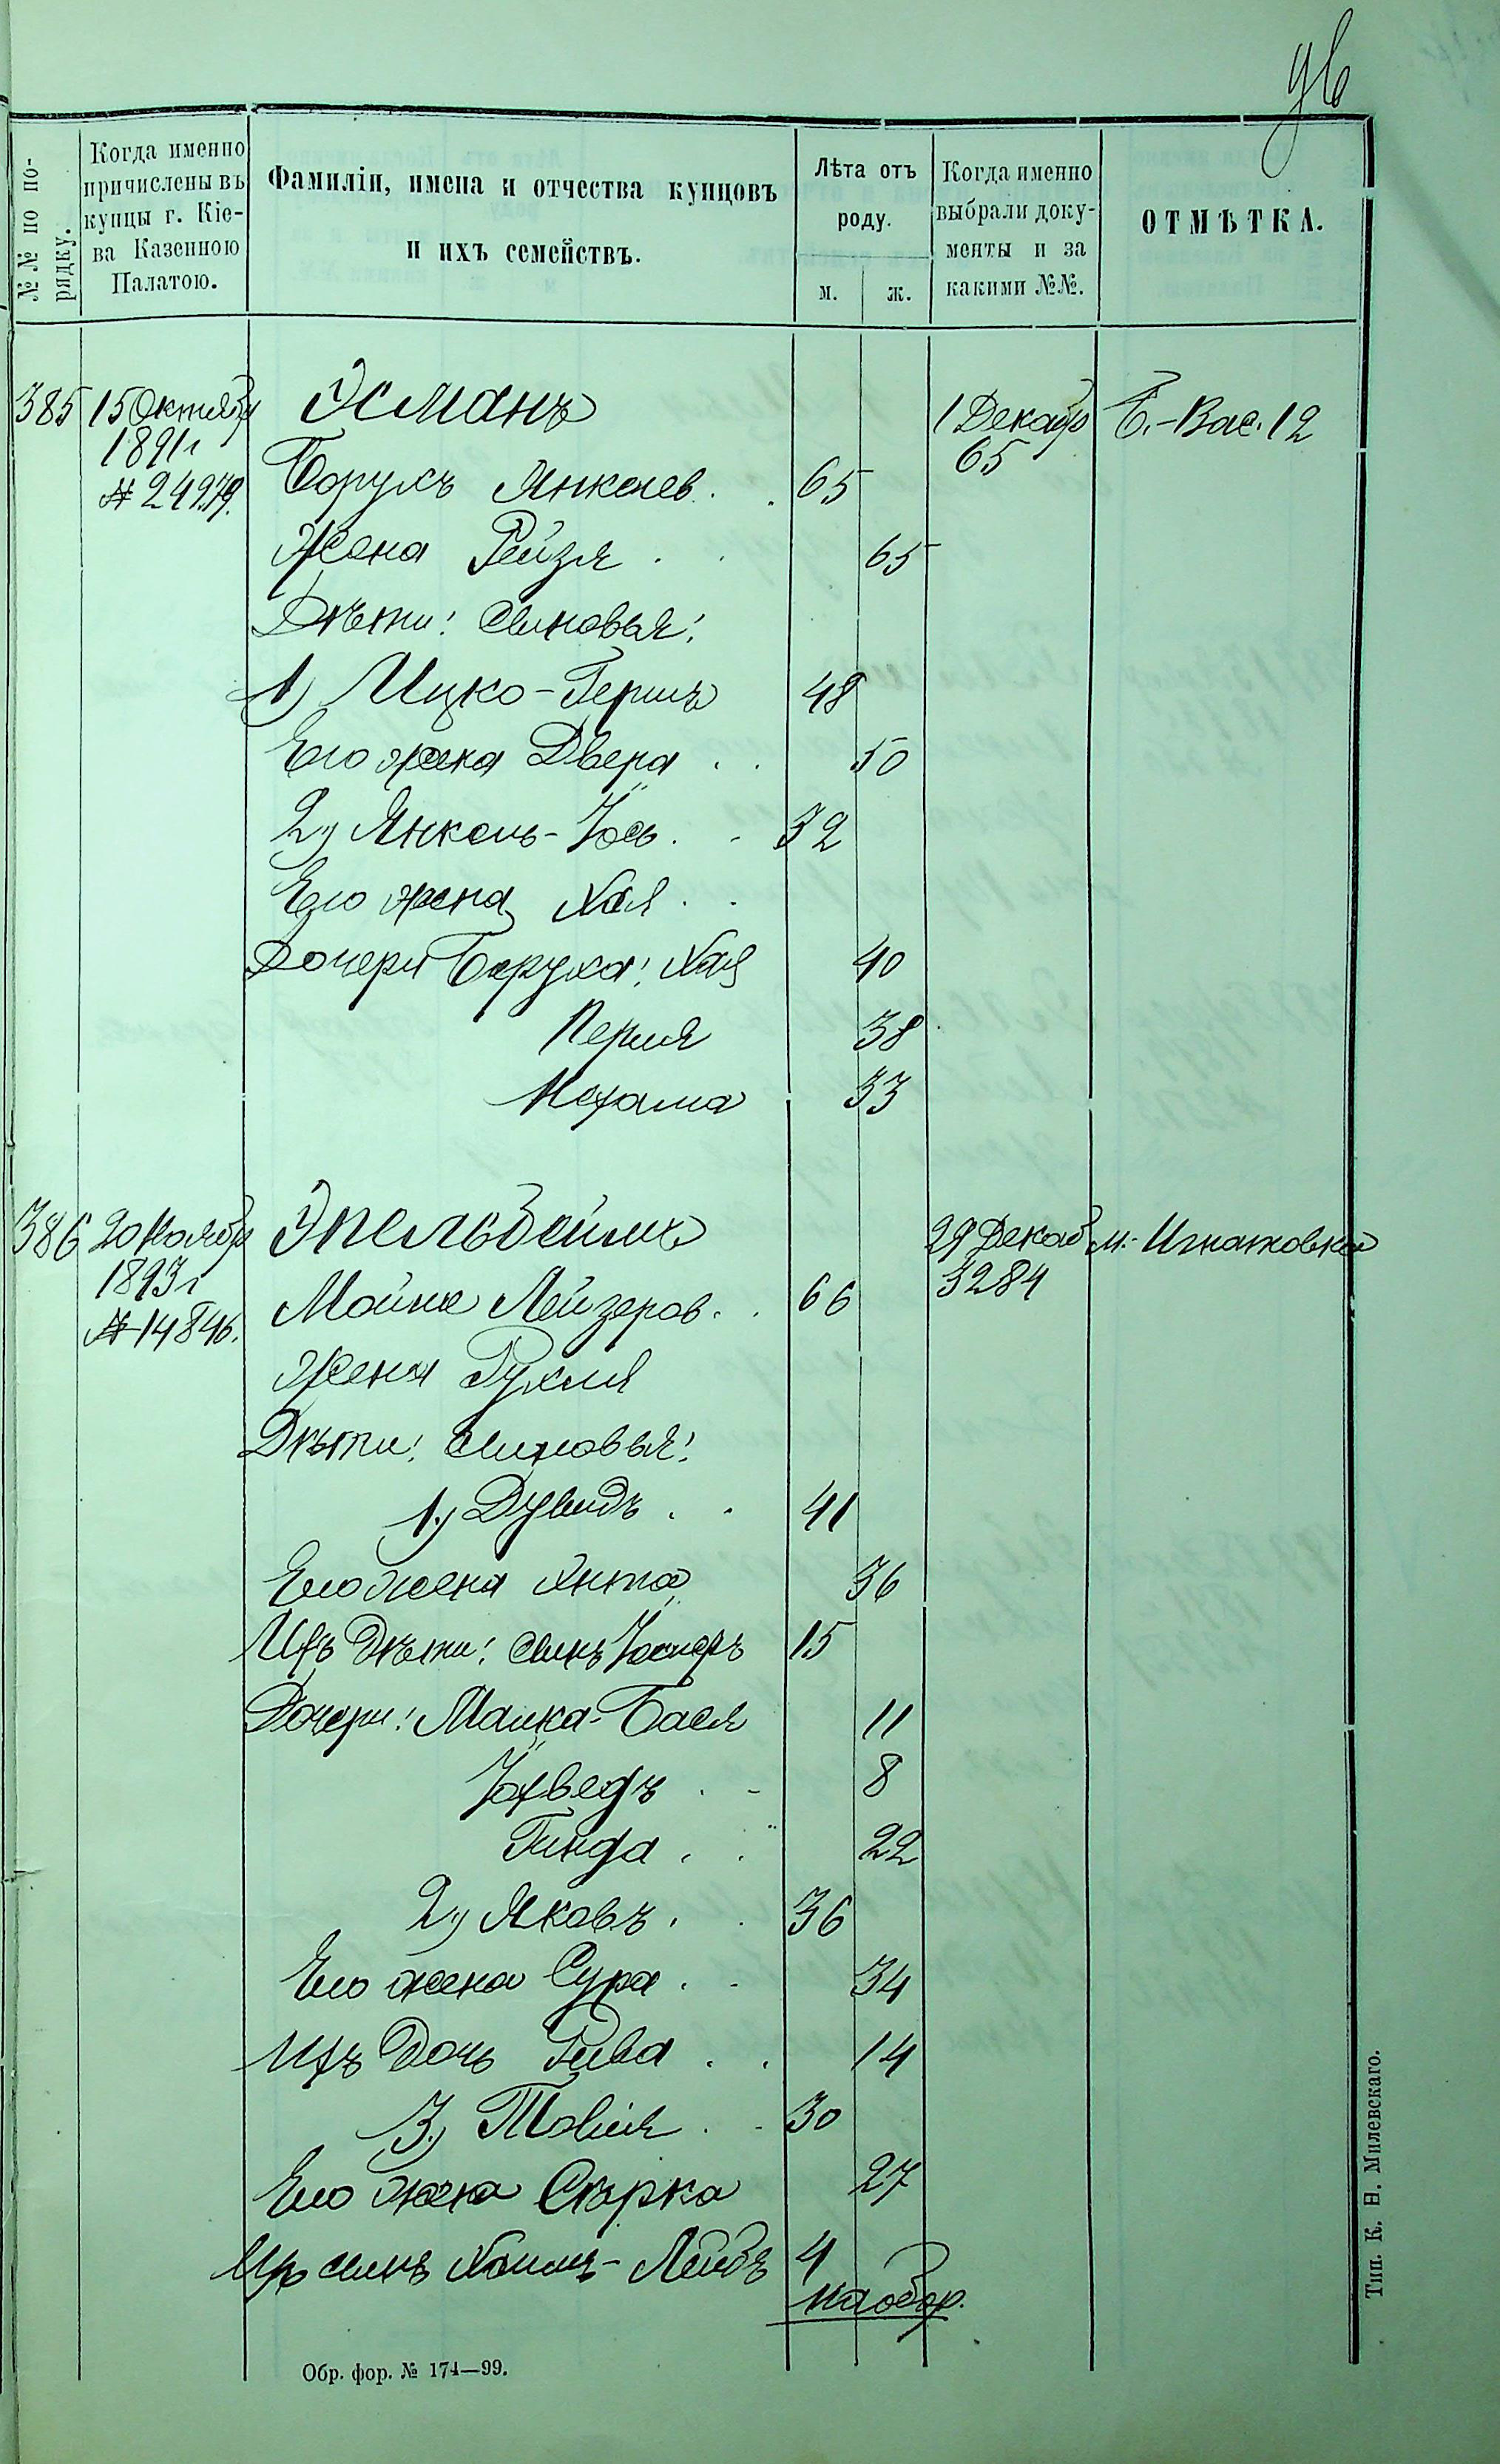 96
№№ по порядку.
Когда именно причислены въ купцы г. Кіева Казенною Палатою.
Фамиліи, имена и отчества купцовъ и ихъ семействъ.
Лѣта отъ роду.
м. ж.
Когда именно выбрали документы и за какими №№.
ОТМѢТКА.
385 15 Октябр Эсманъ 1 Декабр Б.-Вас. 12
1891 г 65
№ 24279. Борухъ Янкелев. 65
Жена Рейзя 65
Дѣти: сыновья:
1) Ицко-Гершъ 48
Его жена Двера 50
2) Янкель-Іось 32
Его жена Хая
Дочери Боруха: Хая 40
Перля 38
Нехама 33
386 20 Ноябр Эпельбеймъ 29 Декаб м. Игнатовка
1893 г 3284
№ 14846. Мойше Лейзеров. 66
Жена Рухля
Дѣти: сыновья:
1) Дувидъ 41
Его жена Янта 36
Ихъ дѣти: сынъ 15
Дочери: Малка-Бася 11
Іохведъ 8
Гинда 22
2) Яковъ 36
Его жена Сура 34
Ихъ дочь Рива 14
3) Товія 30
Его жена Сырка 27
Ихъ сынъ Хаимъ-Лейбъ 4
на обор.
Обр. фор. № 174—99.
Тип. К. Н. Милевскаго.